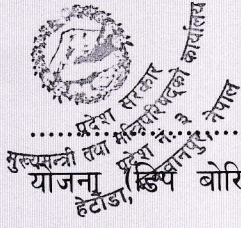 प्रदेश सरकार
मुख्यमन्त्री तथा मन्त्रिपरिषद्को कार्यालय
प्रदेश नं. ३
हेटौंडा, मकवानपुर, नेपाल
....................
योजना (डिप बोरि